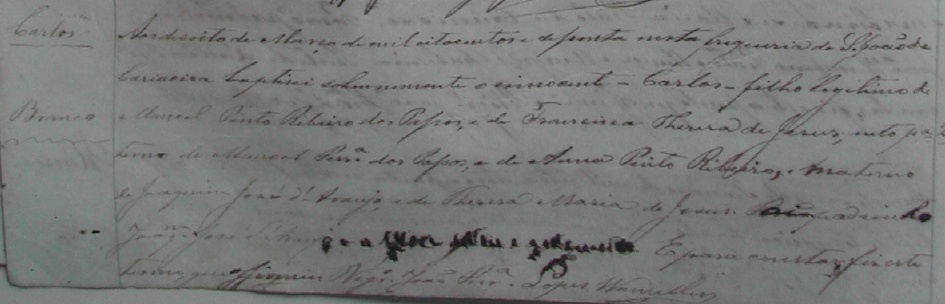 Carlos
Branco
Aos desoito de Março de mil oitocentos e sesenta nesta freguesia de S. João de
Cariacica baptisei solennemente o innocente - Carlos - filho legitimo de
Manoel Pinto Ribeiro dos Passos, e de Francisca Thereza de Jesus, neto pa-
terno de Manoel Perª dos Passos, e de Anna Pinto Ribeiro, e materno
de Joaquim José d'Araujo, e de Thereza Maria de Jesus. padrinho
Joaqm José d'Araujo e a E para constar fiz este
termo que Vigrº João Perª Lopes Wanzeller